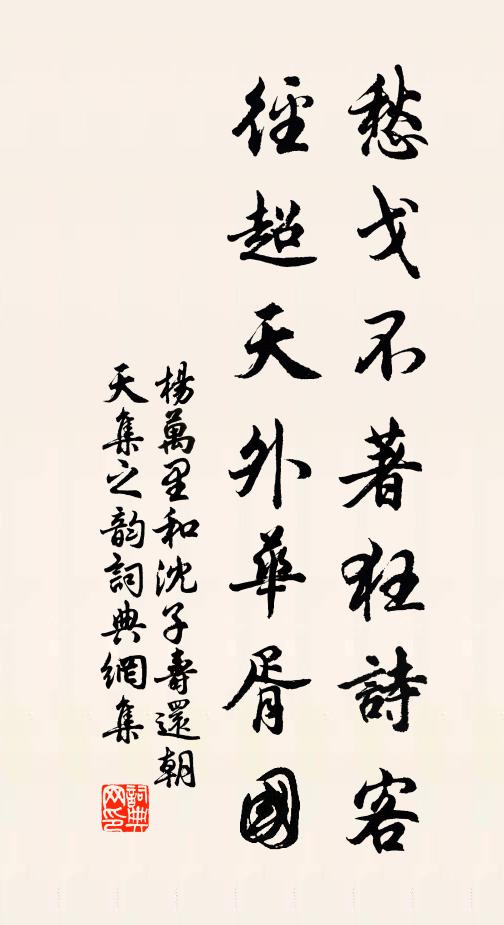 愁戈不著狂詩客
徑超天外華胥國
楊萬里和沈子壽還朝
天集之韵詞典網集
詞典网印